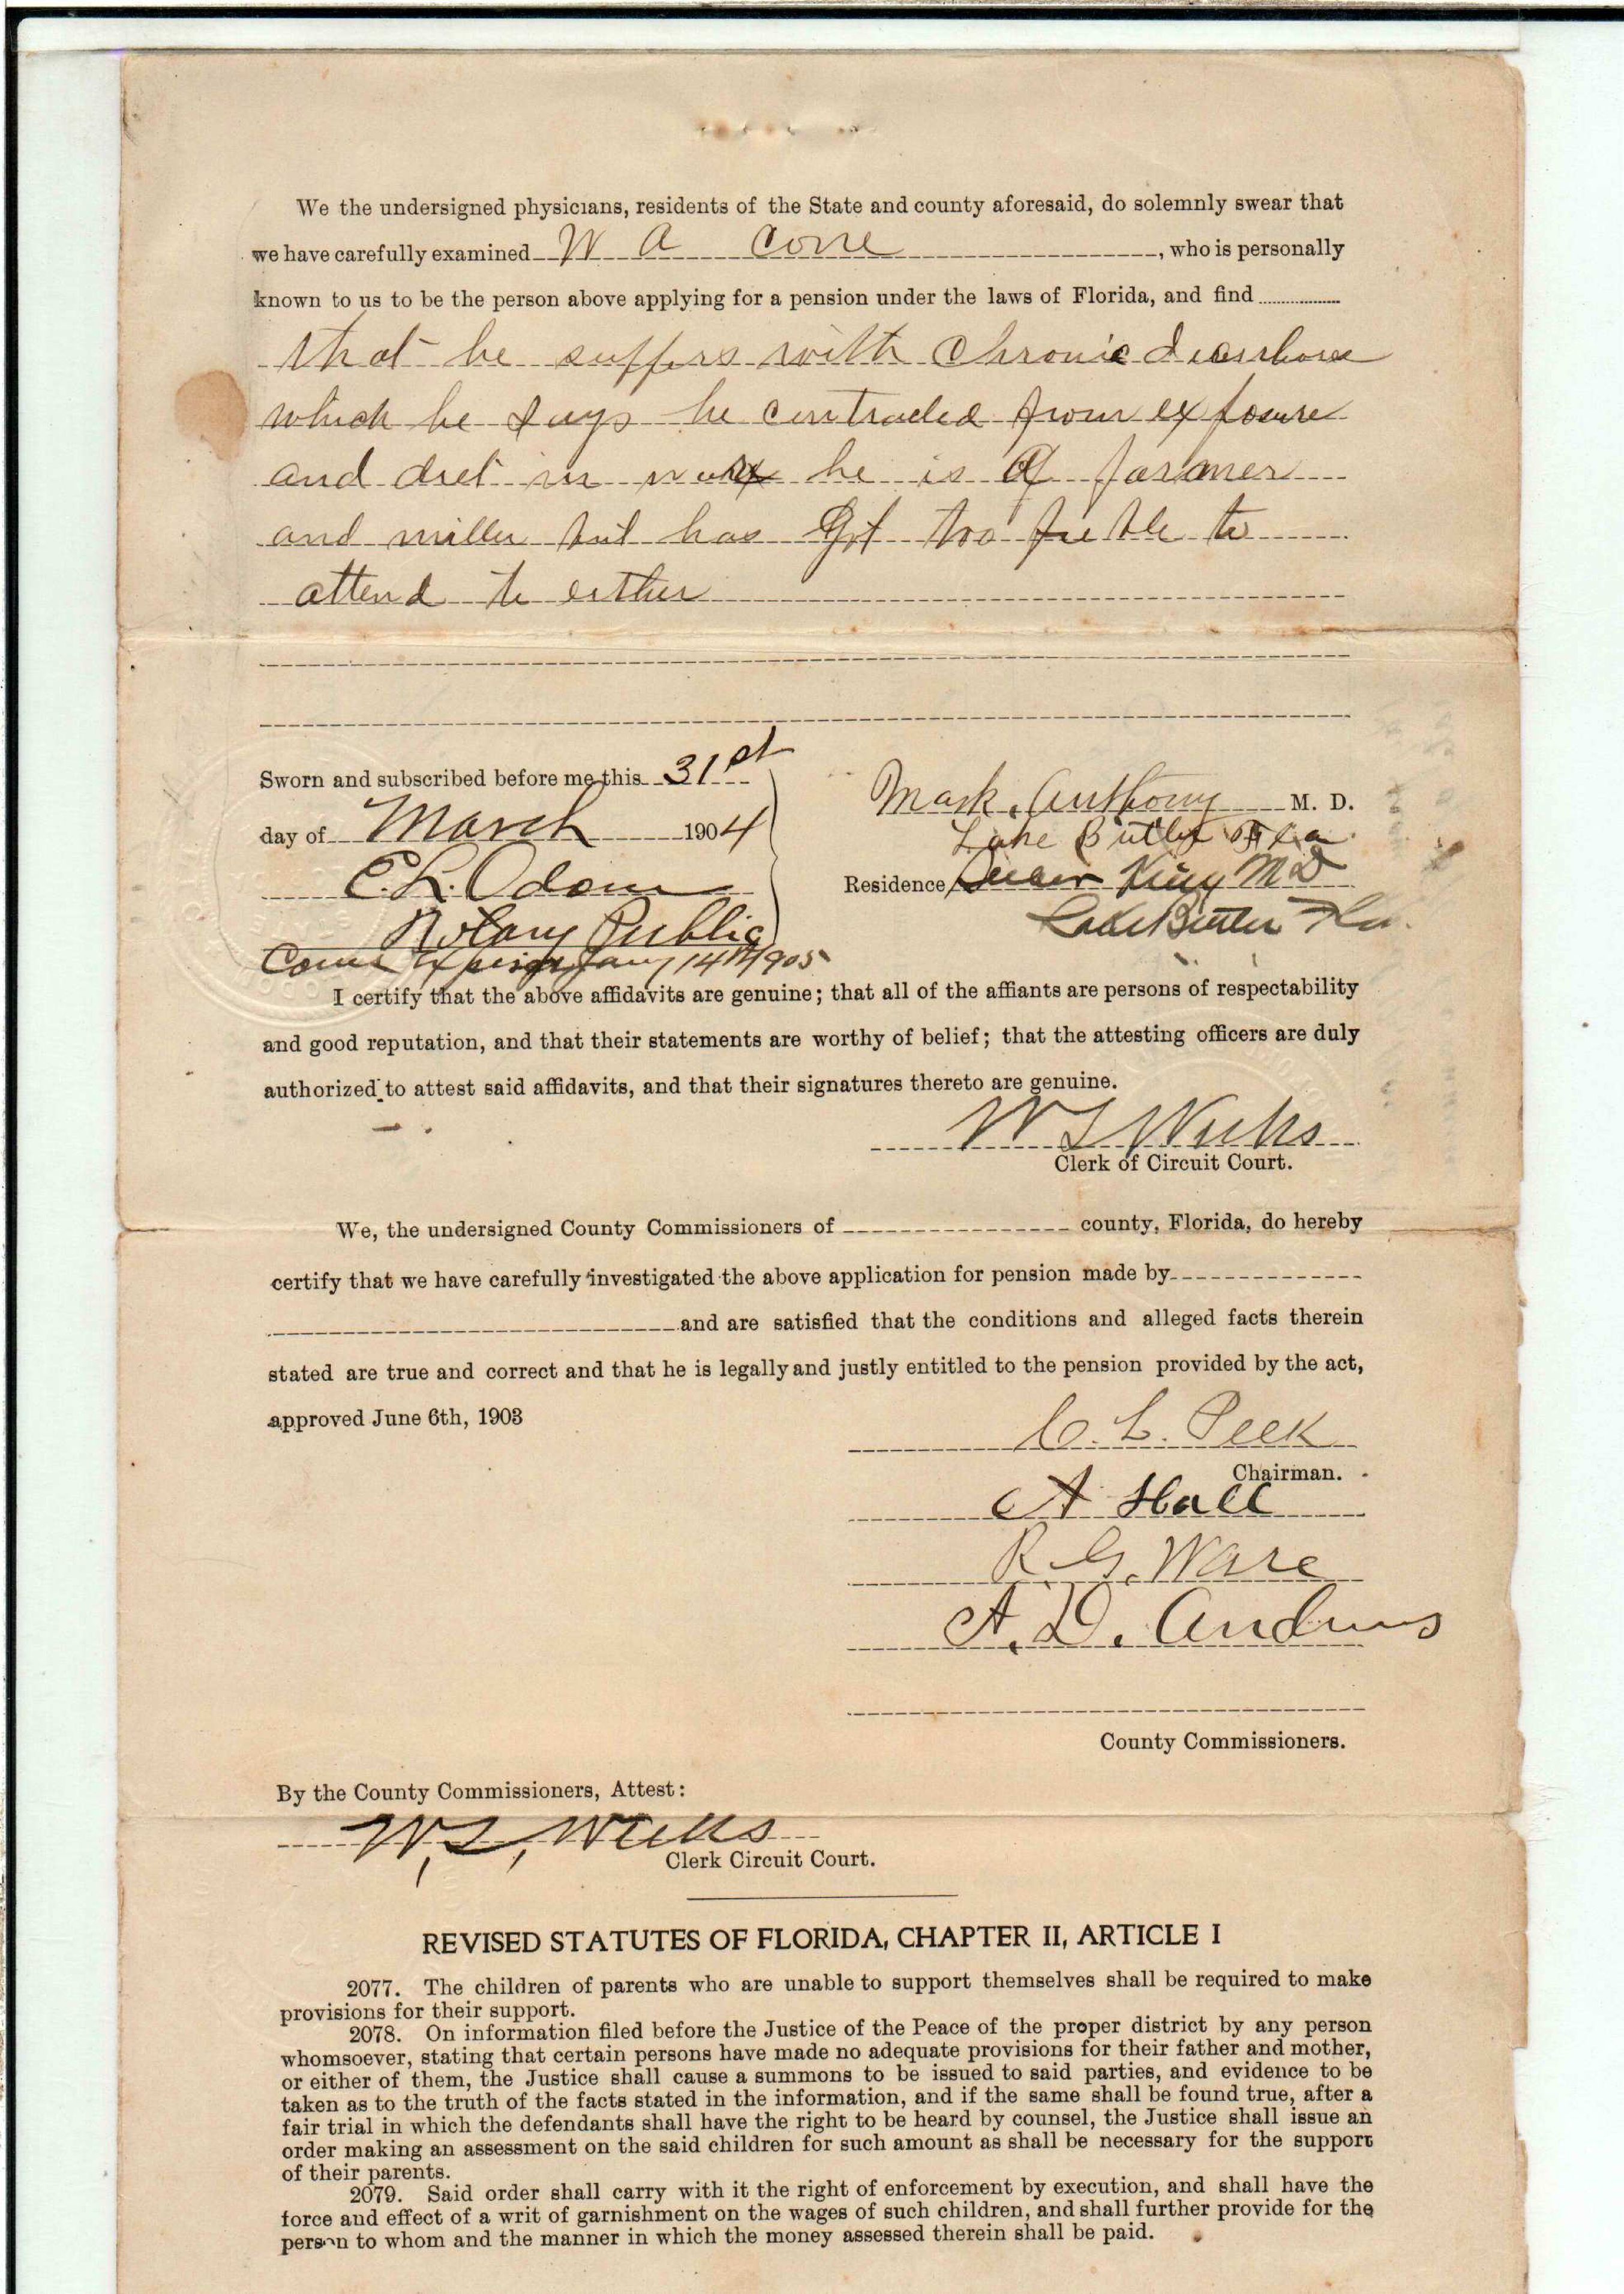 We the undersigned physicians, residents of the State and county aforesaid, do solemnly swear that
we have carefully examined W A Cone, who is personally
known to us to be the person above applying for a pension under the laws of Florida, and find
that he suffers with Chronic diarrhoea
which he says he contracted from exposure
and diet in war he is a farmer
and miller but has got too feeble to
attend to either
Sworn and subscribed before me this 31st
day of March 1904
E. L. Odom
Notary Public
Coms Expires Jany 14th 1905
Mark Anthony M. D.
Lake Butler Fla
Residence, King MD
Lake Butler Fla.
I certify that the above affidavits are genuine; that all of the affiants are persons of respectability
and good reputation, and that their statements are worthy of belief; that the attesting officers are duly
authorized to attest said affidavits, and that their signatures thereto are genuine.
W L Weeks
Clerk of Circuit Court.
We, the undersigned County Commissioners of county, Florida, do hereby
certify that we have carefully investigated the above application for pension made by
and are satisfied that the conditions and alleged facts therein
stated are true and correct and that he is legally and justly entitled to the pension provided by the act,
approved June 6th, 1903
C. L. Peek
Chairman.
A Hall
R. G. Ware
A. D. Andrews
County Commissioners.
By the County Commissioners, Attest:
W, L, Weeks
Clerk Circuit Court.
REVISED STATUTES OF FLORIDA, CHAPTER II, ARTICLE I
2077. The children of parents who are unable to support themselves shall be required to make
provisions for their support.
2078. On information filed before the Justice of the Peace of the proper district by any person
whomsoever, stating that certain persons have made no adequate provisions for their father and mother,
or either of them, the Justice shall cause a summons to be issued to said parties, and evidence to be
taken as to the truth of the facts stated in the information, and if the same shall be found true, after a
fair trial in which the defendants shall have the right to be heard by counsel, the Justice shall issue an
order making an assessment on the said children for such amount as shall be necessary for the support
of their parents.
2079. Said order shall carry with it the right of enforcement by execution, and shall have the
force and effect of a writ of garnishment on the wages of such children, and shall further provide for the
person to whom and the manner in which the money assessed therein shall be paid.